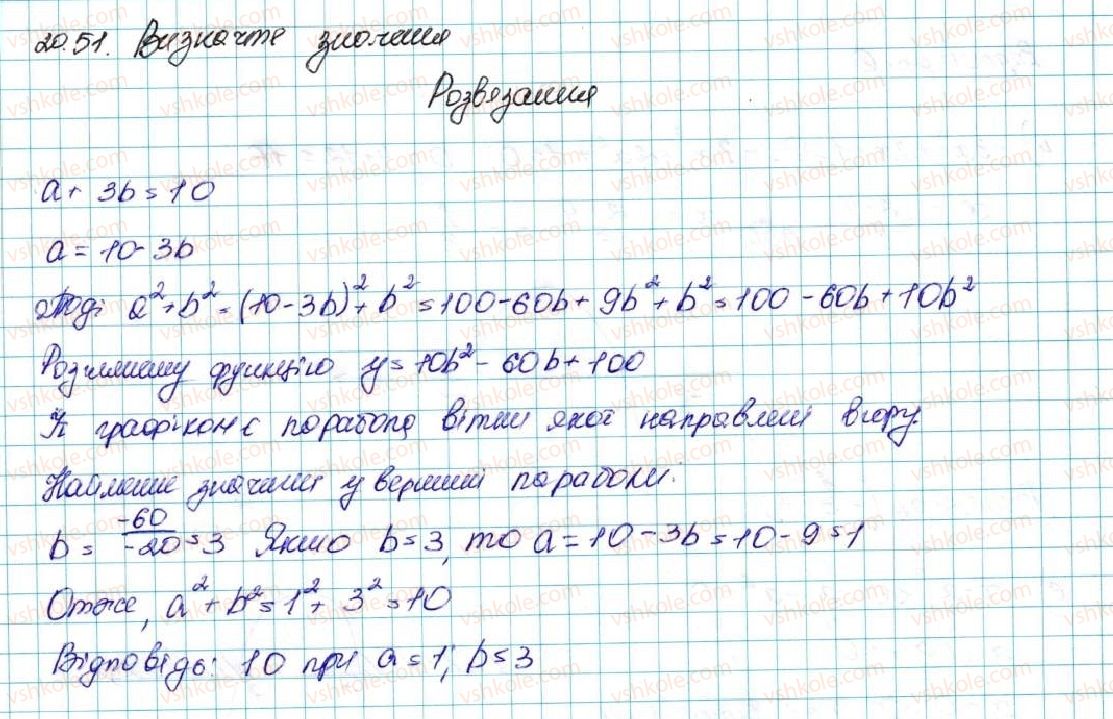 20.51. Визначте значення
Розвязання
a + 3b = 10
a = 10 - 3b
Тоді a² + b² = (10 - 3b)² + b² = 100 - 60b + 9b² + b² = 100 - 60b + 10b²
Розглянему функцію y = 10b² - 60b + 100
Її графіком є парабола вітки якої направлені вгору.
Найменше значення у вершині параболи.
b = -60/-20 = 3 Якщо b = 3, то a = 10 - 3b = 10 - 9 = 1
Отже, a² + b² = 1² + 3² = 10
Відповідь: 10 при a = 1; b = 3